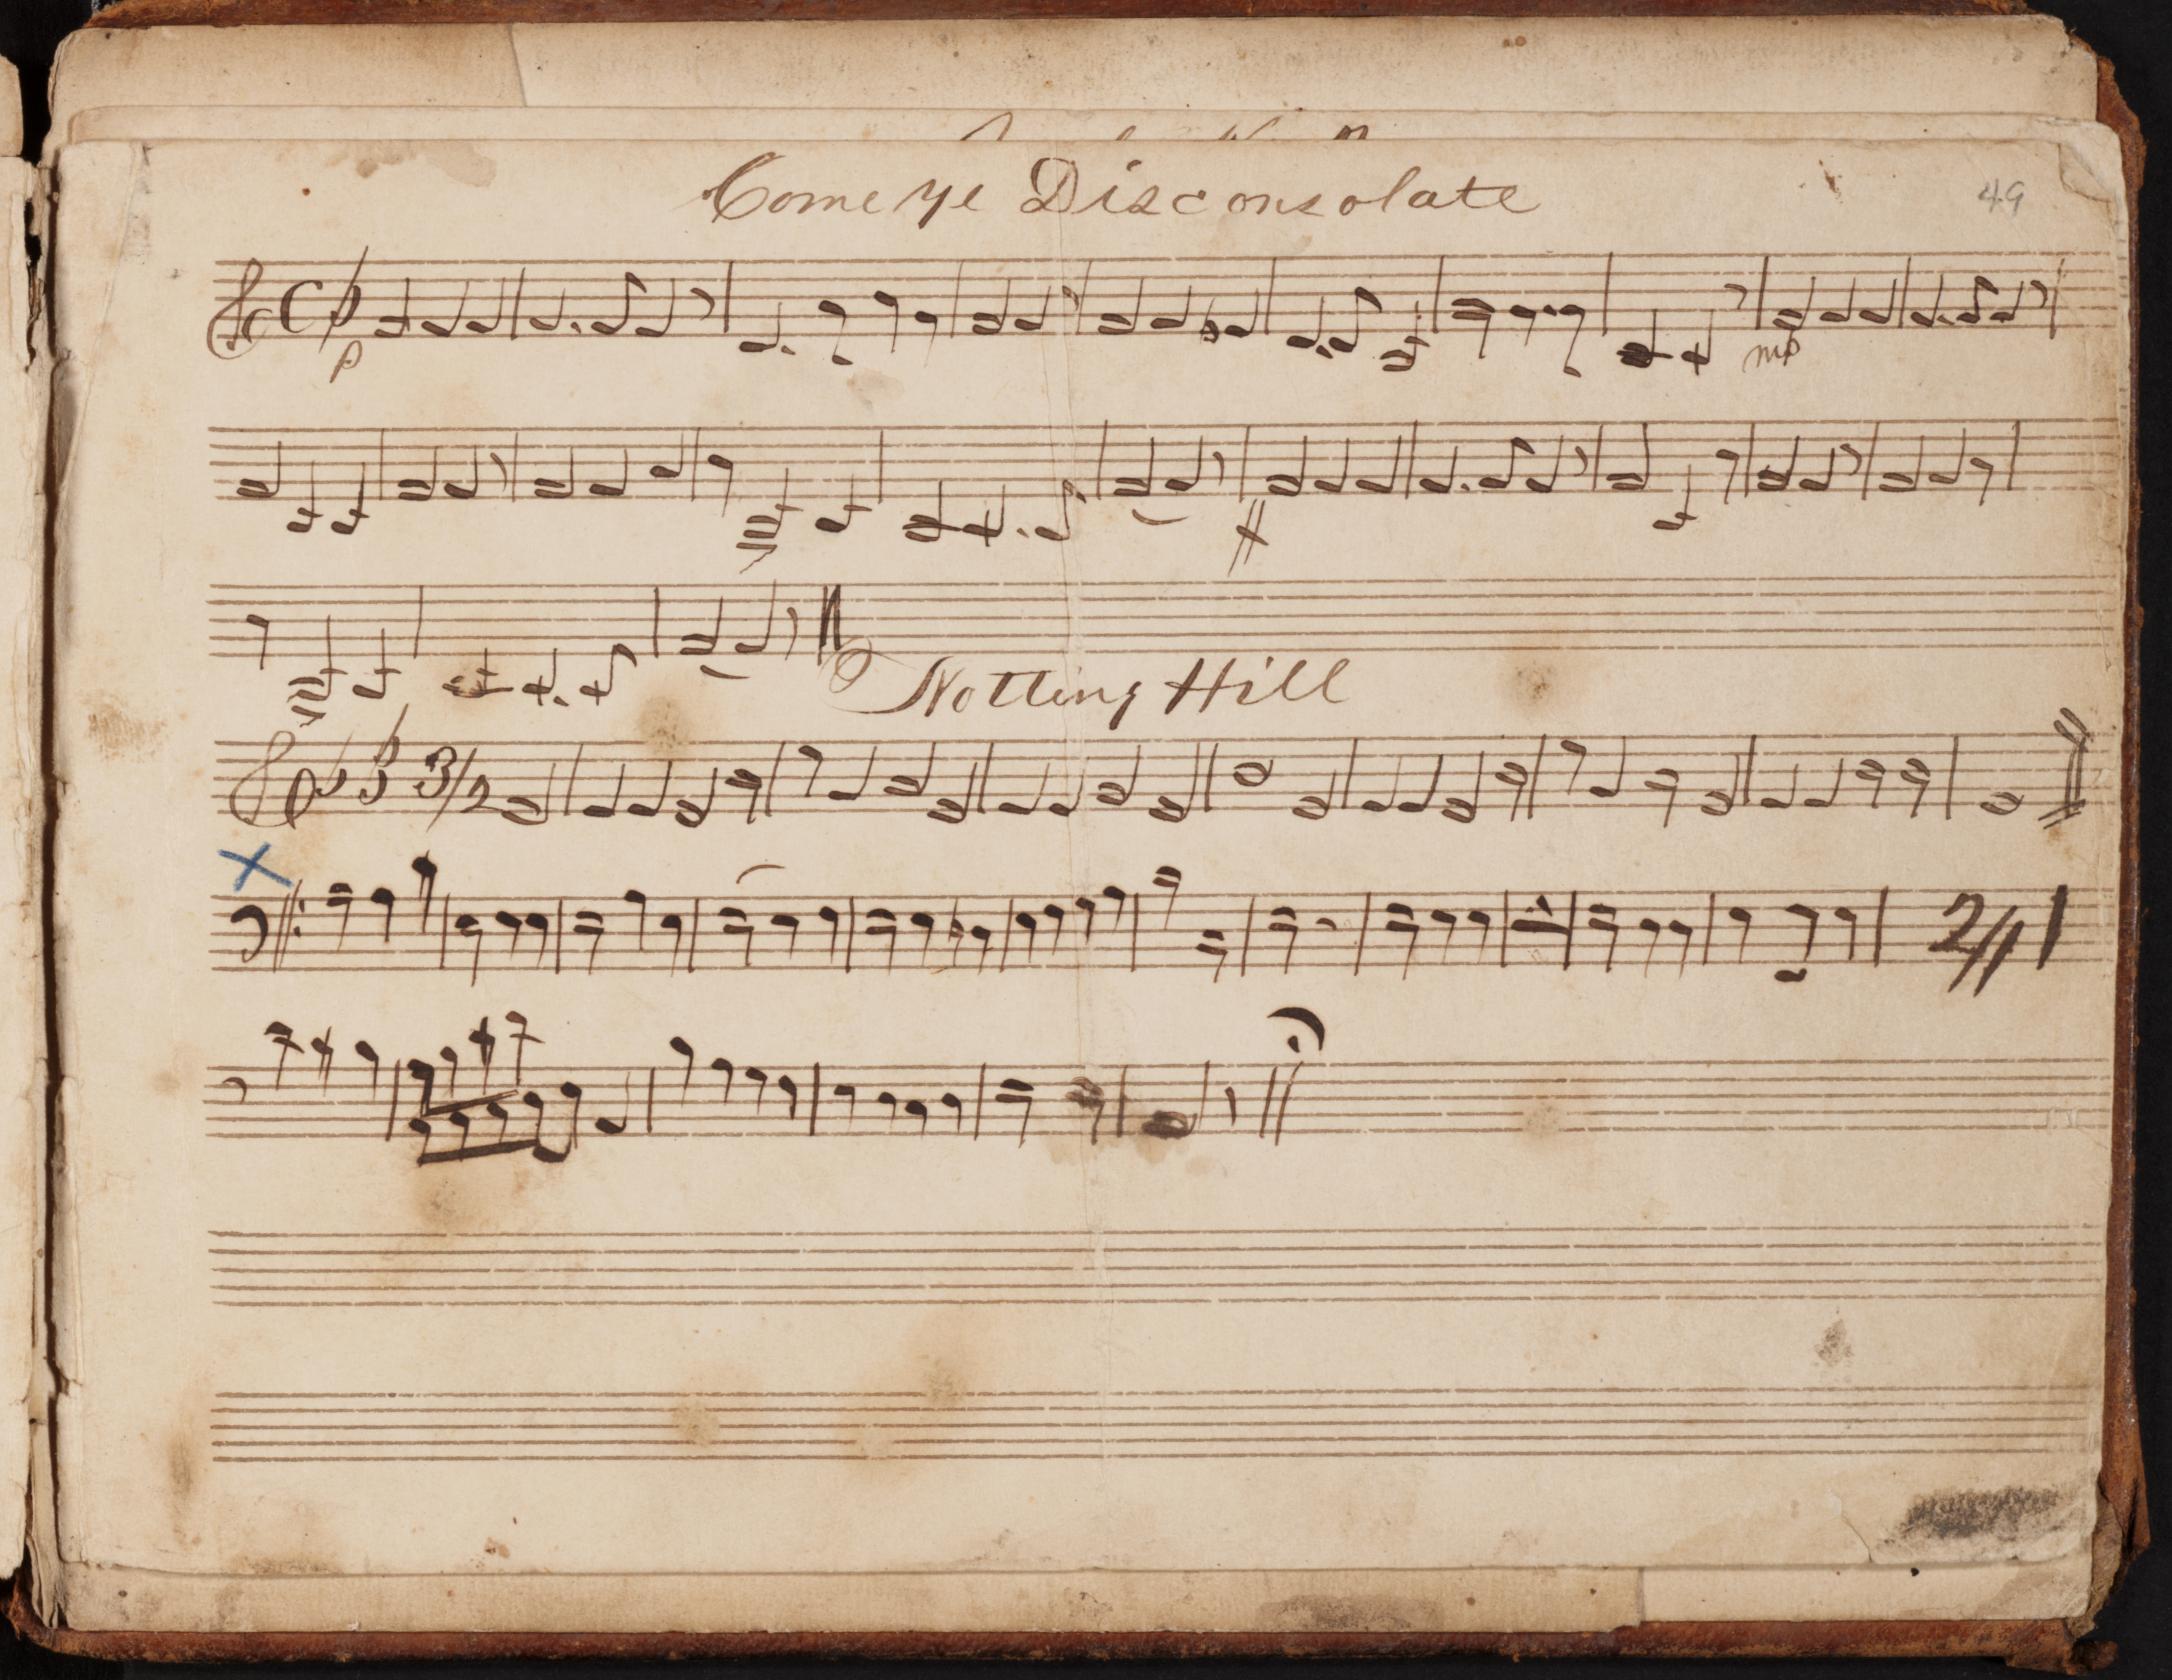 Come ye Disconsolate
49
C
p
mp
Notting Hill
3/2
2